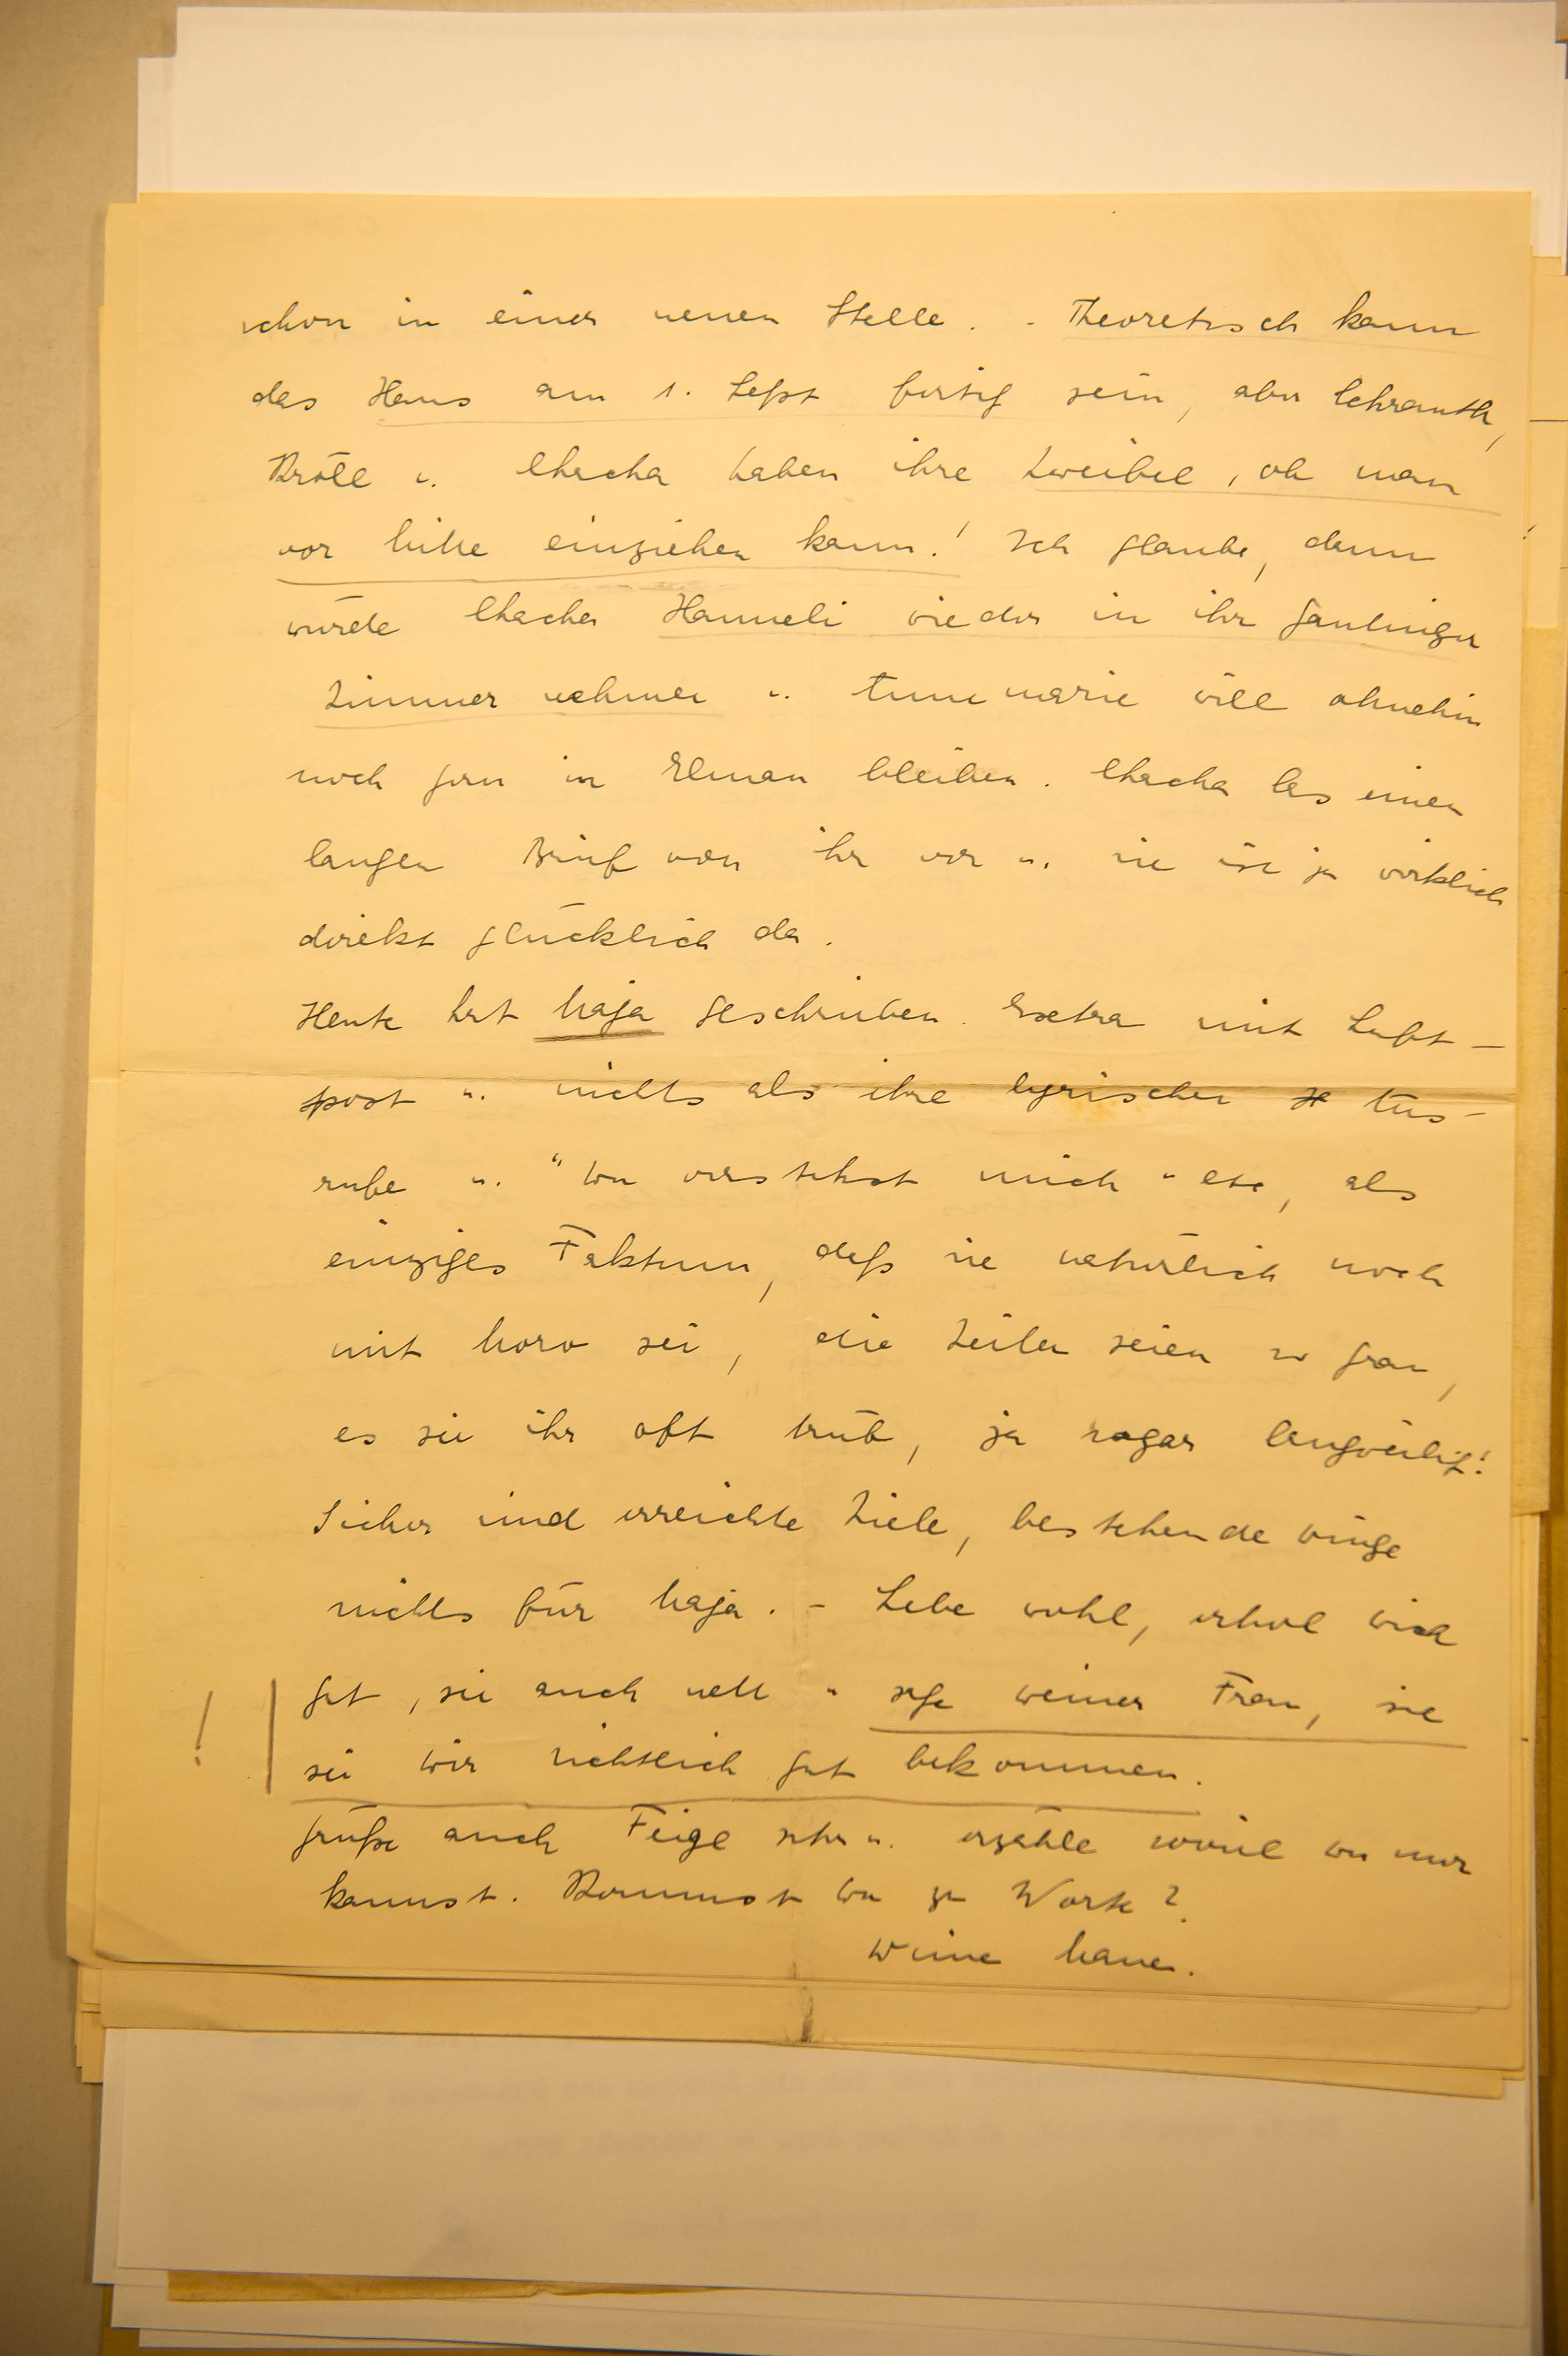 schon in einer neuen Stelle. - Theoretisch kann
das Haus am 1. Sept fertig sein, aber Schrauth,
Kröll u. Chacha haben ihre Zweifel, ob man
vor Mitte einziehen kann! Ich glaube, dann
würde Chacha Hanneli wieder in ihr Gautinger
Zimmer nehmen u. Annemarie will ohnehin
noch gern in Elmau bleiben. Chacha las einen
langen Brief von ihr vor u. sie ist ja wirklich
direkt glücklich da.
Heute hat Maja geschrieben. Extra mit Luft-
post u. nichts als ihre lyrischen Aus-
rufe u. "Du verstehst mich" etc, als
einziges Faktum, daß sie natürlich noch
mit Moro sei, die Zeiten seien so grau,
es sei ihr oft trüb, ja sogar langweilig!
Sicher sind erreichte Ziele, bestehende Dinge
nichts für Maja. - Lebe wohl, erhol Dich
gut, sei auch nett u. sage Deiner Frau, sie
sei Dir sichtlich gut bekommen.
!
Grüße auch Feige sehr u. erzähle soviel Du nur
kannst. Kommst Du zu Worte?
Deine Mauer.